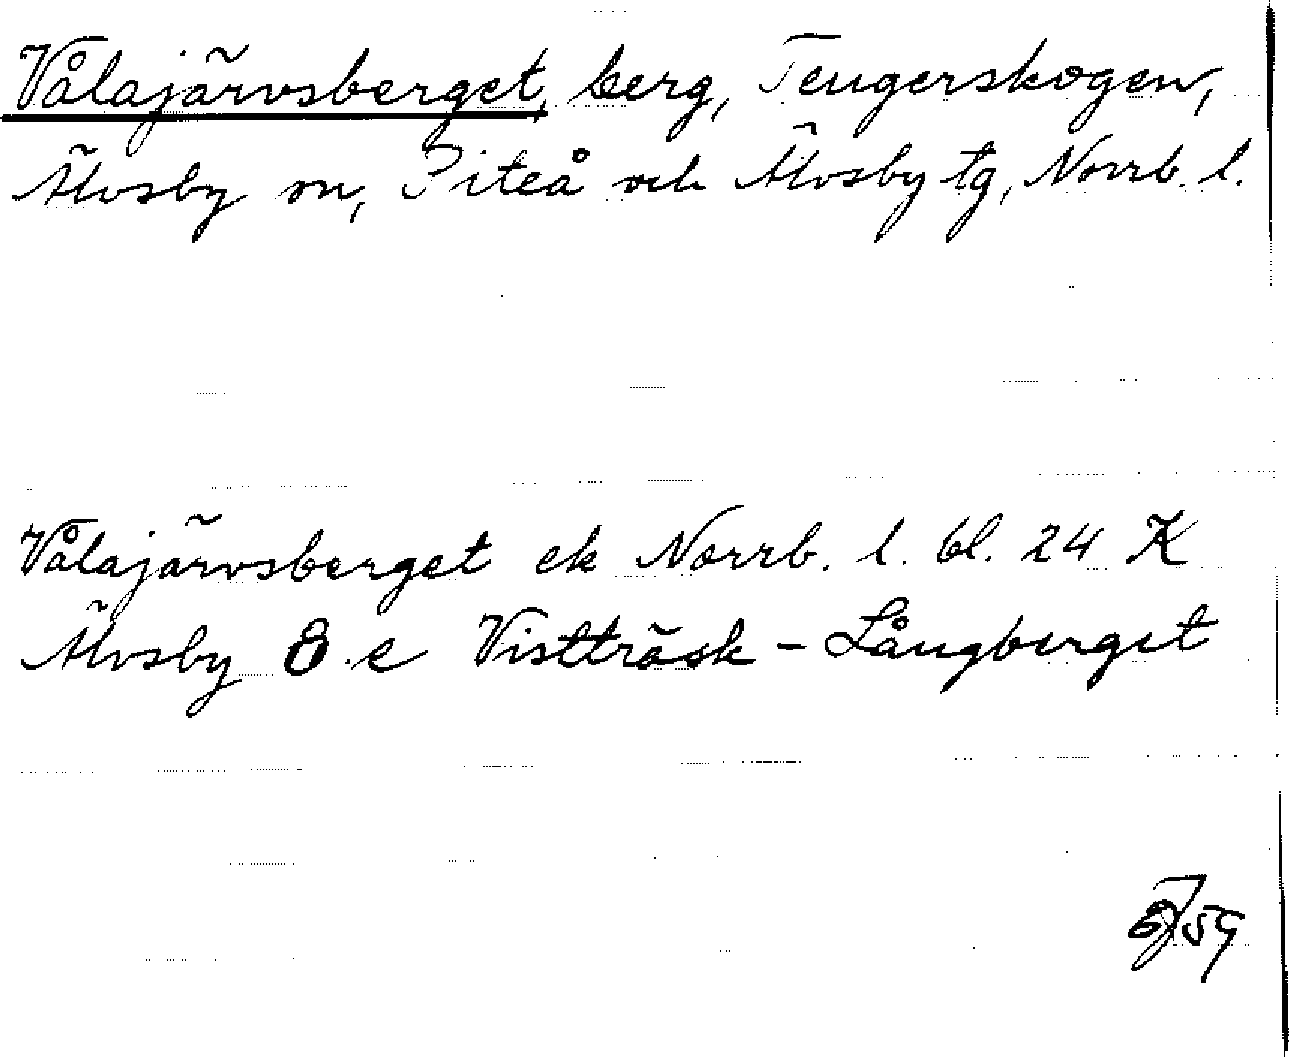 Vålajärvsberget, berg, Teugerskogen,
Älvsby sn, Piteå och Älvsby tg, Norrb. l.
Vålajärvsberget ek Norrb. l. bl. 24 K
Älvsby 8 e Vistträsk - Långberget